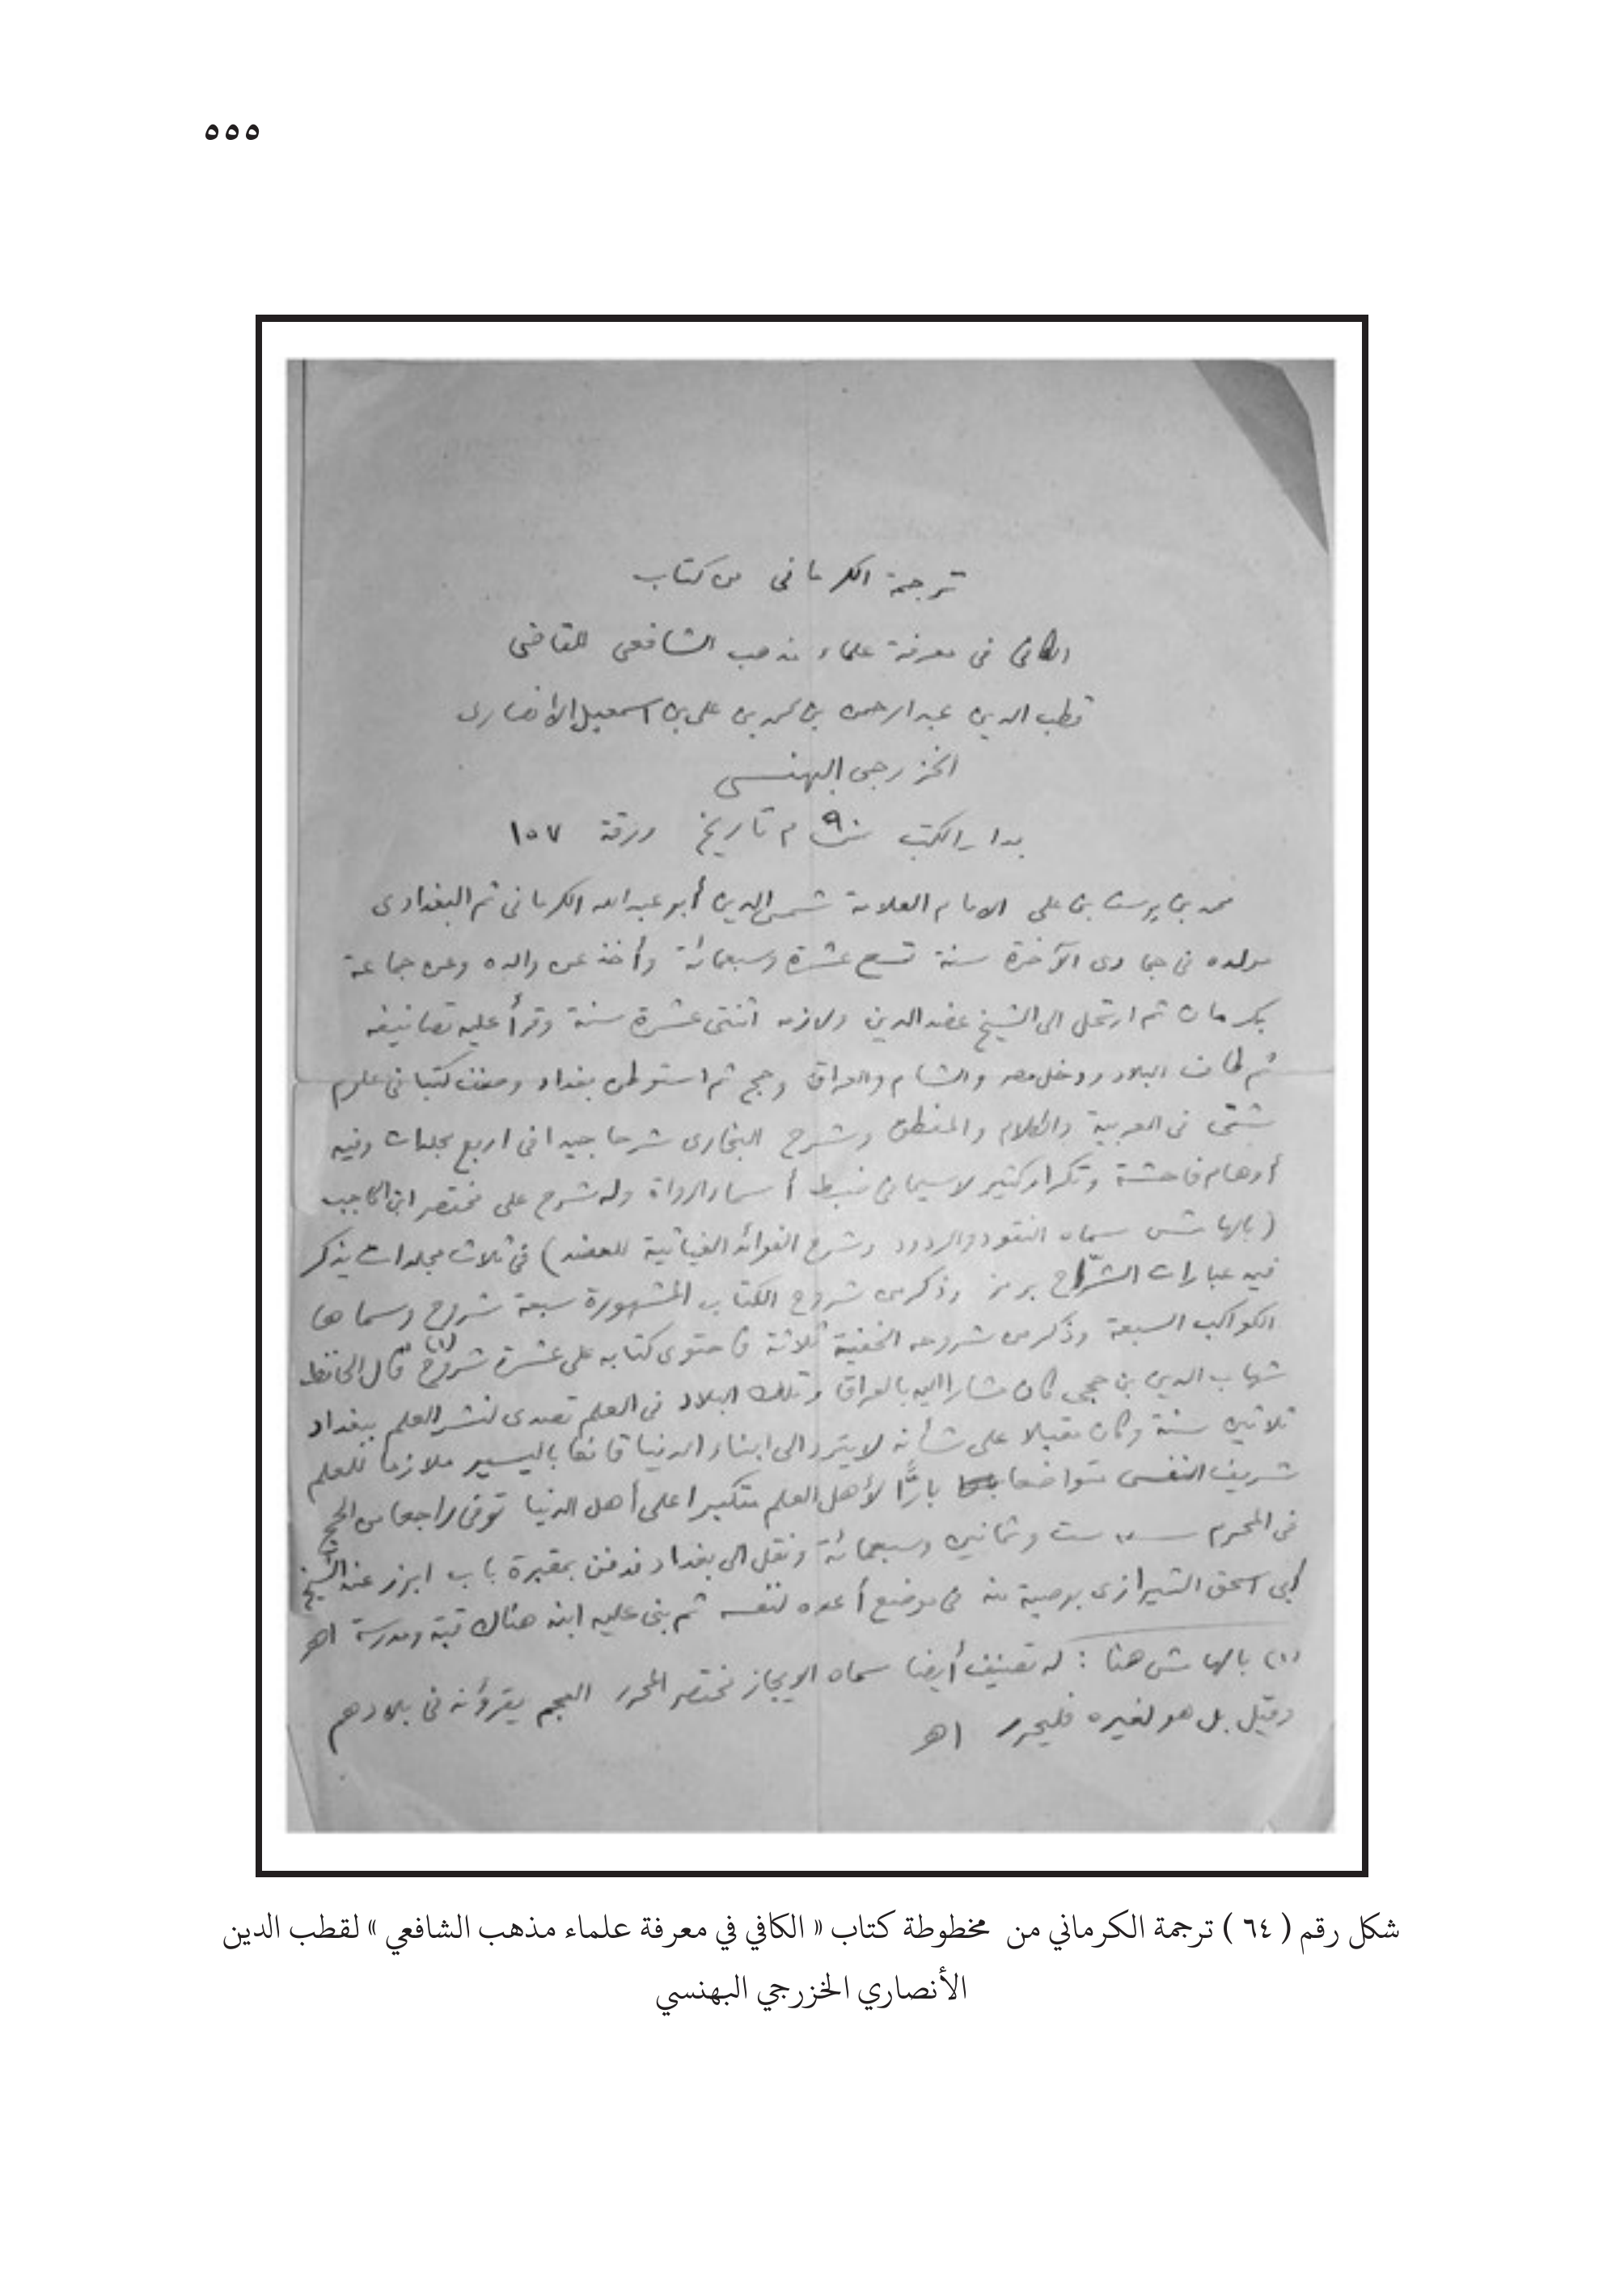 ٥٥٥
ترجمة الكرمانى من كتاب
الكافى فى معرفة علماء مذهب الشافعى للقاضى
قطب الدين عبد الرحمن بن محمد بن على بن اسمعيل الانصارى
الخزرجى البهنسى
بدار الكتب ٩ م تاريخ ورقة ١٥٧
محمد بن يوسف بن على الامام العلامة شمس الدين أبو عبد الله الكرمانى ثم البغدادى
مولده فى جمادى الآخرة سنة تسع عشرة وسبعمائة وأخذ عن والده وعن جماعة
بكرمان ثم ارتحل الى الشيخ عضد الدين ولازمه اثنتى عشرة سنة وقرأ عليه تصانيفه
ثم طاف البلاد ودخل مصر والشام والعراق وحج ثم استوطن بغداد وصنف كتبا فى علوم
شتى فى العربية والكلام والمنطق وشرح البخارى شرحا جيدا فى اربع مجلدات وفيه
أوهام فاحشة وتكرار كثير لاسيما فى ضبط أسماء الرواة وله شرح على مختصر ابن الحاجب
(بالهامش سماه النقود والردود وشرح الفوائد الغياثية للعضد) فى ثلاث مجلدات يذكر
فيه عبارات الشرّاح برمز وذكر من شروح الكتاب المشهورة سبعة شروح وسماها
الكواكب السبعة وذكر من شروحه الخفية ثلاثة فاحتوى كتابه على عشرة شروح (١) قال الحافظ
شهاب الدين بن حجى كان مشارا اليه بالعراق وتلك البلاد فى العلم تصدى لنشر العلم ببغداد
ثلاثين سنة وكان مقبلا على شأنه لا يتردد الى ابناء الدنيا قانعا باليسير ملازما للعلم
شريف النفس متواضعا بارًّا لأهل العلم متكبرا على أهل الدنيا توفى راجعا من الحج
فى المحرم سنة ست وثمانين وسبعمائة ونقل الى بغداد فدفن بمقبرة باب ابرز عند الشيخ
أبى اسحق الشيرازى بوصية منه فى موضع أعده لنفسه ثم بنى عليه ابنه هناك قبة ومدرسة اهـ
(١) بالهامش هنا : له تصنيف أيضا سماه الايجاز مختصر المحرر العجم يقرؤنه فى بلادهم
وقيل بل هو لغيره فليحرر اهـ
شكل رقم ( ٦٤ ) ترجمة الكرماني من مخطوطة كتاب « الكافي في معرفة علماء مذهب الشافعي » لقطب الدين
الأنصاري الخزرجي البهنسي